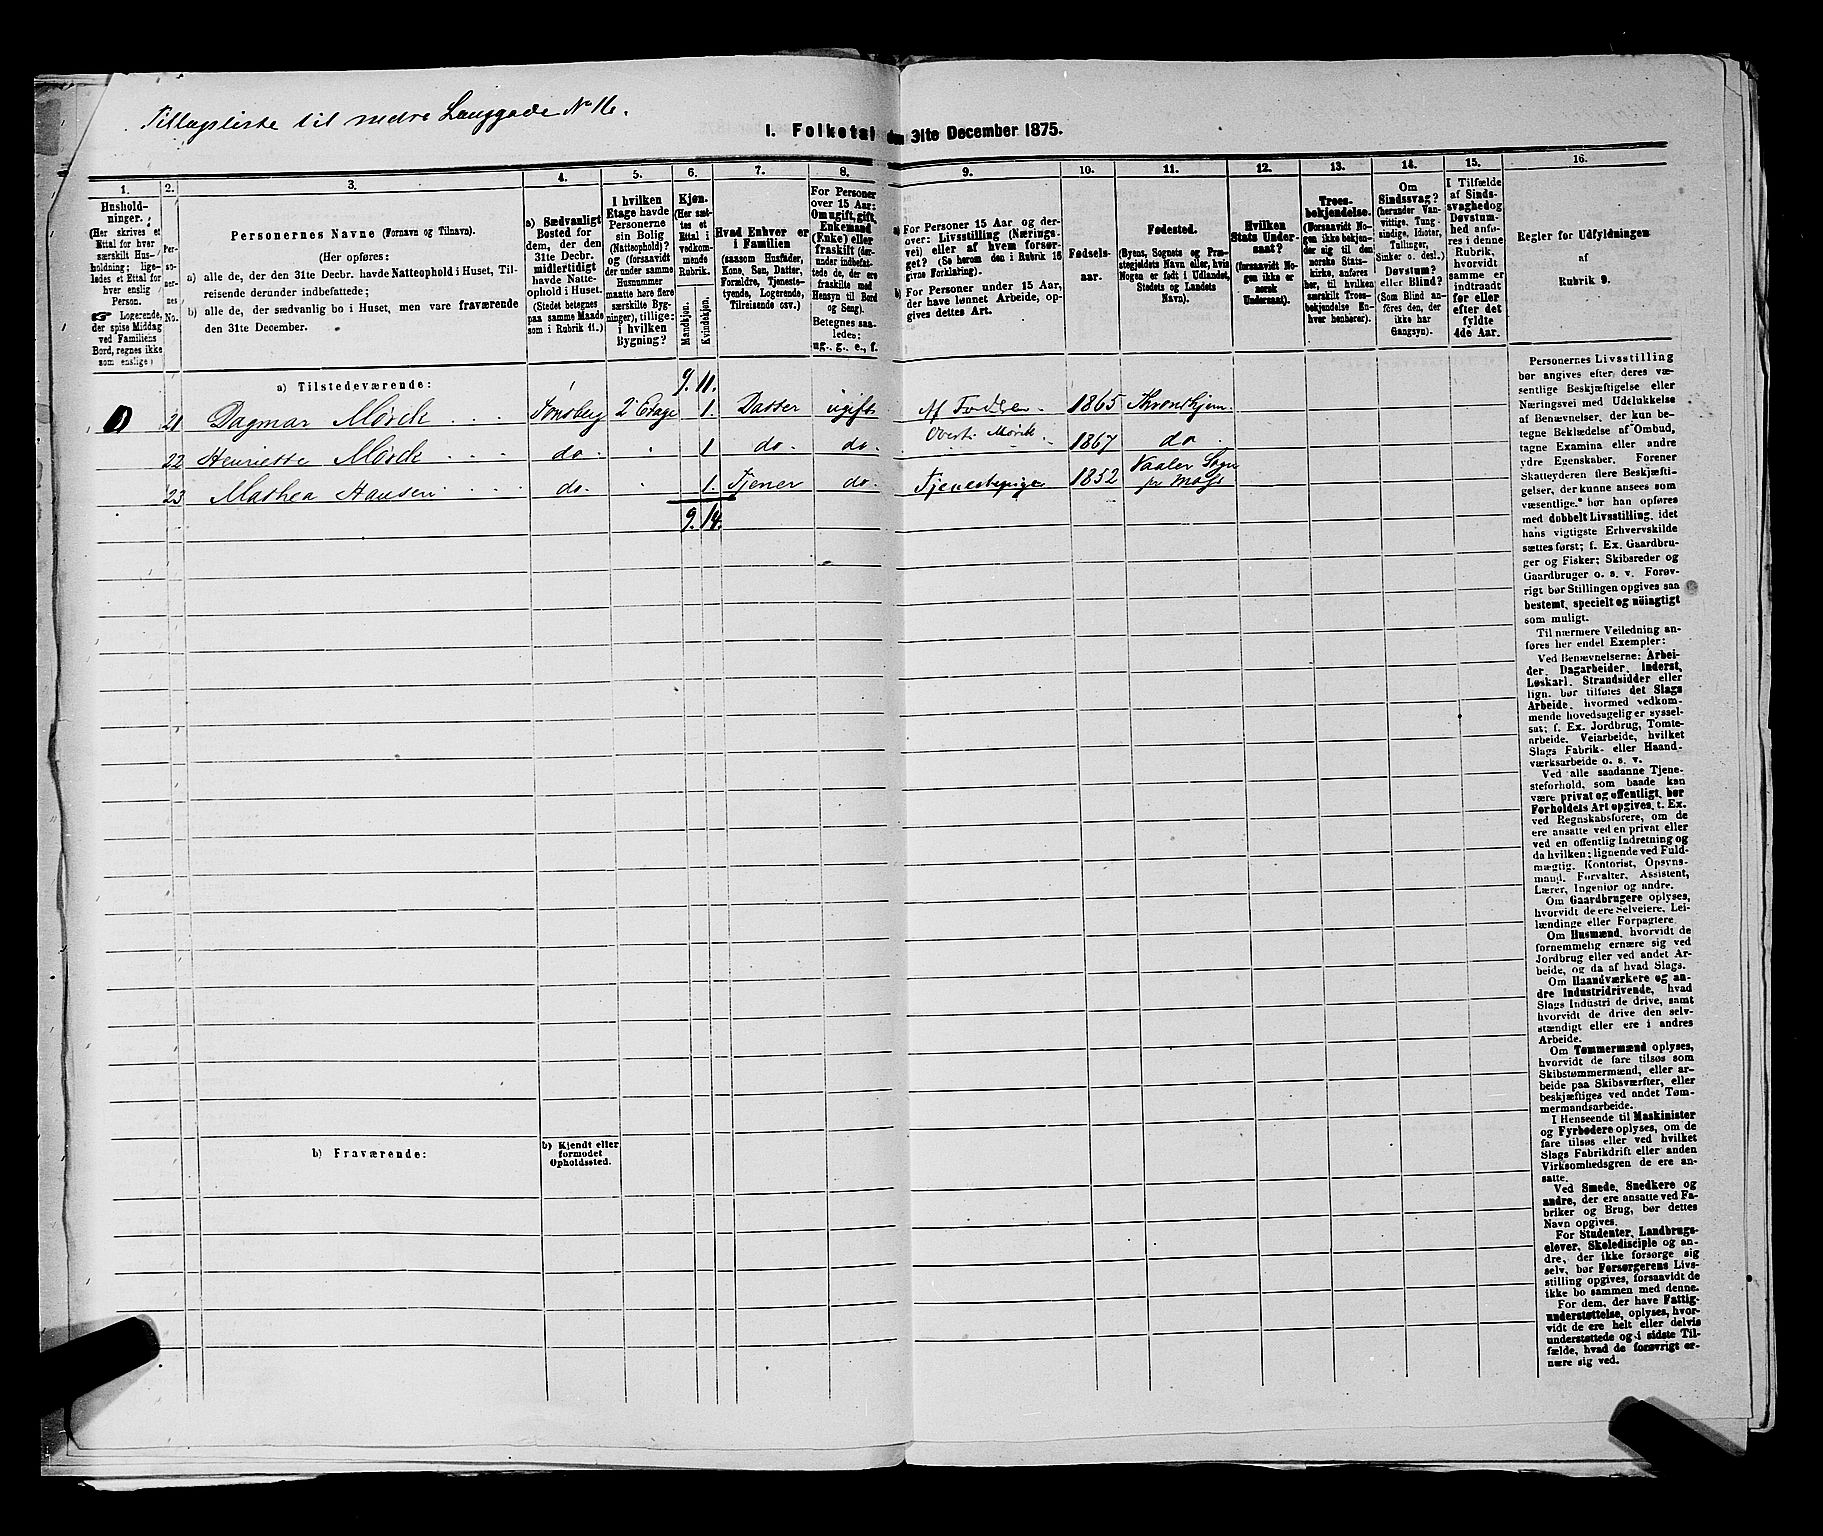 Tillægsliste til nedre Langgade No 16.
I. Folketal den 31te December 1875.
1.
2.
3.
4.
5.
6.
7.
8.
9.
10.
11.
12.
13.
14.
15.
16.
Hushold-
ninger.
(Her skrives et
Ettal for hver
særskilt Hus-
holdning; lige-
ledes et Ettal for
hver enslig
Person.
☛ Logerende,
der spise Middag
ved Familiens
Bord, regnes ikke
som enslige)
Per-
so-
ner-
nes
No.
Personernes Navne (Fornavn og Tilnavn).
(Her opføres:
a) alle de, der den 31te Decbr. havde Natteophold i Huset, Til-
reisende derunder indbefattede;
b) alle de, der sædvanlig bo i Huset, men vare fraværende
den 31te December.
a) Sædvanligt
Bosted for
dem, der den
31te Decbr.
midlertidigt
havde Natte-
ophold i Huset.
(Stedet betegnes
paa samme Maade
som i Rubrik 11.)
I hvilken
Etage havde
Personerne
sin Bolig
(Natteophold)?
og (forsaavidt
der under samme
Husnummer
maatte høre flere
særskilte Byg-
ninger), tillige:
i hvilken
Bygning?
Kjøn.
(Her sæt-
tes et
Ettal i
vedkom-
mende
Rubrik.
Mandkjøn.
Kvindekjøn.
Hvad Enhver er
i Familien
(saasom Husfader,
Kone, Søn, Datter,
Forældre, Tjeneste-
tyende, Logerende,
Tilreisende osv.)
For Personer
over 15 Aar:
Om ugift, gift,
Enkemand
(Enke) eller
fraskilt (der-
under indbefat-
tede de, der ere
fraskilte med
Hensyn til Bord
og Seng).
Betegnes saa-
ledes:
ug., g., e., f.
a) For Personer 15 Aar og der-
over: Livsstilling (Nærings-
vei) eller af hvem forsør-
get? (Se herom den i Rubrik 16
givs Forklaring).
b) For Personer under 15 Aar,
der have lønnet Arbeide, op-
gives dettes Art.
Fødsels-
aar.
Fødested.
(Byens, Sognets og Præ-
stegjeldets Navn eller, hvis
Nogen er født i Udlandet,
Stedets og Landets
Navn).
Hvilken
Stats Under-
saat?
(forsaavidt No-
gen ikke er
norsk
Undersaat).
Troes-
bekjendelse.
(Forsaavidt No-
gen ikke bekjen-
der sig til den
norske Stats-
kirke, anføres
her, til hvilken
særskilt Troes-
bekjendelse En-
hver henhører).
Om
Sindssvag?
(herunder Van-
vittige, Tung-
sindige, Idioter,
Tullinger,
Sinker o. desl.)
Døvstum?
eller Blind?
(Som Blind an-
føres den, der
ikke har
Gangsyn).
I Tilfælde
af Sinds-
svaghed og
Døvstum-
hed anfø-
res i denne
Rubrik,
hvorvidt
samme er
indtraadt
før eller
efter det
fyldte
4de Aar.
Regler for Udfyldningen
af
Rubrik 9.
a) Tilstedeværende:
9. 11.
21 Dagmar Mörch Tönsberg 2' Etage 1. Datter ugift Af Faderen 1865 Throndhjem.
Oberstl. Mörch
22 Henriette Mörch do. " 1 do. do. 1867 do.
23 Mathea Hansen do. " 1. Tjener do. Tjenestepige 1852 Vaaler Sogn
pr Moss
9. 14.
b) Fraværende:
b) Kjendt eller
formodet
Opholdssted.
Personernes Livsstilling
bør angives efter deres væ-
sentlige Beskjæftigelse eller
Næringsvei med Udelukkelse
af Benævnelser, der kun be-
tegne Beklædelse af Ombud,
tagne Examina eller andre
ydre Egenskaber. Forener
Skatteyderen flere Beskjæfti-
gelser, der kunne ansees som
væsentlige, bør han opføres
med dobbelt Livsstilling, idet
hans vigtigste Erhvervskilde
sættes først; f. Ex. Gaardbru-
ger og Fisker; Skibsreder og
Gaardbruger o. s. v. Forøv-
rigt bør Stillingen opgives saa
bestemt, specielt og nöiagtigt
som muligt.
Til nærmere Veiledning an-
føres her endel Exempler:
Ved Benævnelserne: Arbei-
der, Dagarbeider, Inderst,
Løskarl, Strandsidder eller
lign. bør tilføies det Slags
Arbeide, hvormed vedkom-
mende hovedsagelig er syssel-
sat; f. Ex. Jordbrug, Tomte-
arbeide, Veiarbeide, hvilket
Slags Fabrik- eller Haand-
værksarbeide o. s. v.
Ved alle saadanne Tjene-
steforhold, som baade kan
være privat og offentligt, bør
Forholdets Art opgives, t. Ex.
ved Regnskabsførere, om de
ere ansatte ved en privat eller
ved en offentlig Indretning og
da hvilken; lignende ved Fuld-
mægtig, Kontorist, Opsyns-
mand, Forvalter, Assistent,
Lærer, Ingeniør og andre.
Om Gaardbrugere oplyses,
hvorvidt de ere Selveiere, Lei-
lændinge eller Forpagtere.
Om Husmænd, hvorvidt de
fornemmelig ernære sig ved
Jordbrug eller ved andet Ar-
beide, og da af hvad Slags.
Om Haandværkere og an-
dre Industridrivende, hvad
Slags Industri de drive, samt
hvorvidt de drive den selv-
stændigt eller ere i andres
Arbeide.
Om Tømmermænd oplyses,
hvorvidt de fare tilsøs som
Skibstømmermænd, eller ar-
beide paa Skibsværfter, eller
beskjæftiges ved andet Tøm-
mermandsarbeide.
I Henseende til Maskinister
og Fyrbødere oplyses, om de
fare tilsøs eller ved hvilket
Slags Fabrikdrift eller anden
Virksomhedsgren de ere an-
satte.
Ved Smede, Snedkere og
andre, der ere ansatte ved Fa-
briker og Brug, bør dettes
Navn opgives.
For Studenter, Landbrugs-
elever, Skoledisciple og an-
dre, der ikke forsørge sig
selv, bør Forsørgerens Livs-
stilling opgives, forsaavidt de
ikke bo sammen med denne.
For dem, der have Fattig-
understøttelse, oplyses, hvor-
vidt de ere helt eller delvis
understøttede og i sidste Til-
fælde, hvad de forøvrigt er-
nære sig ved.